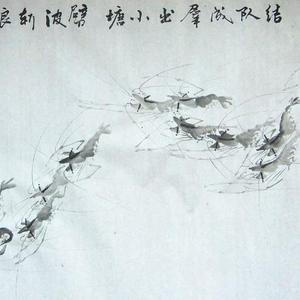 结队成群出小塘 劈波斩浪